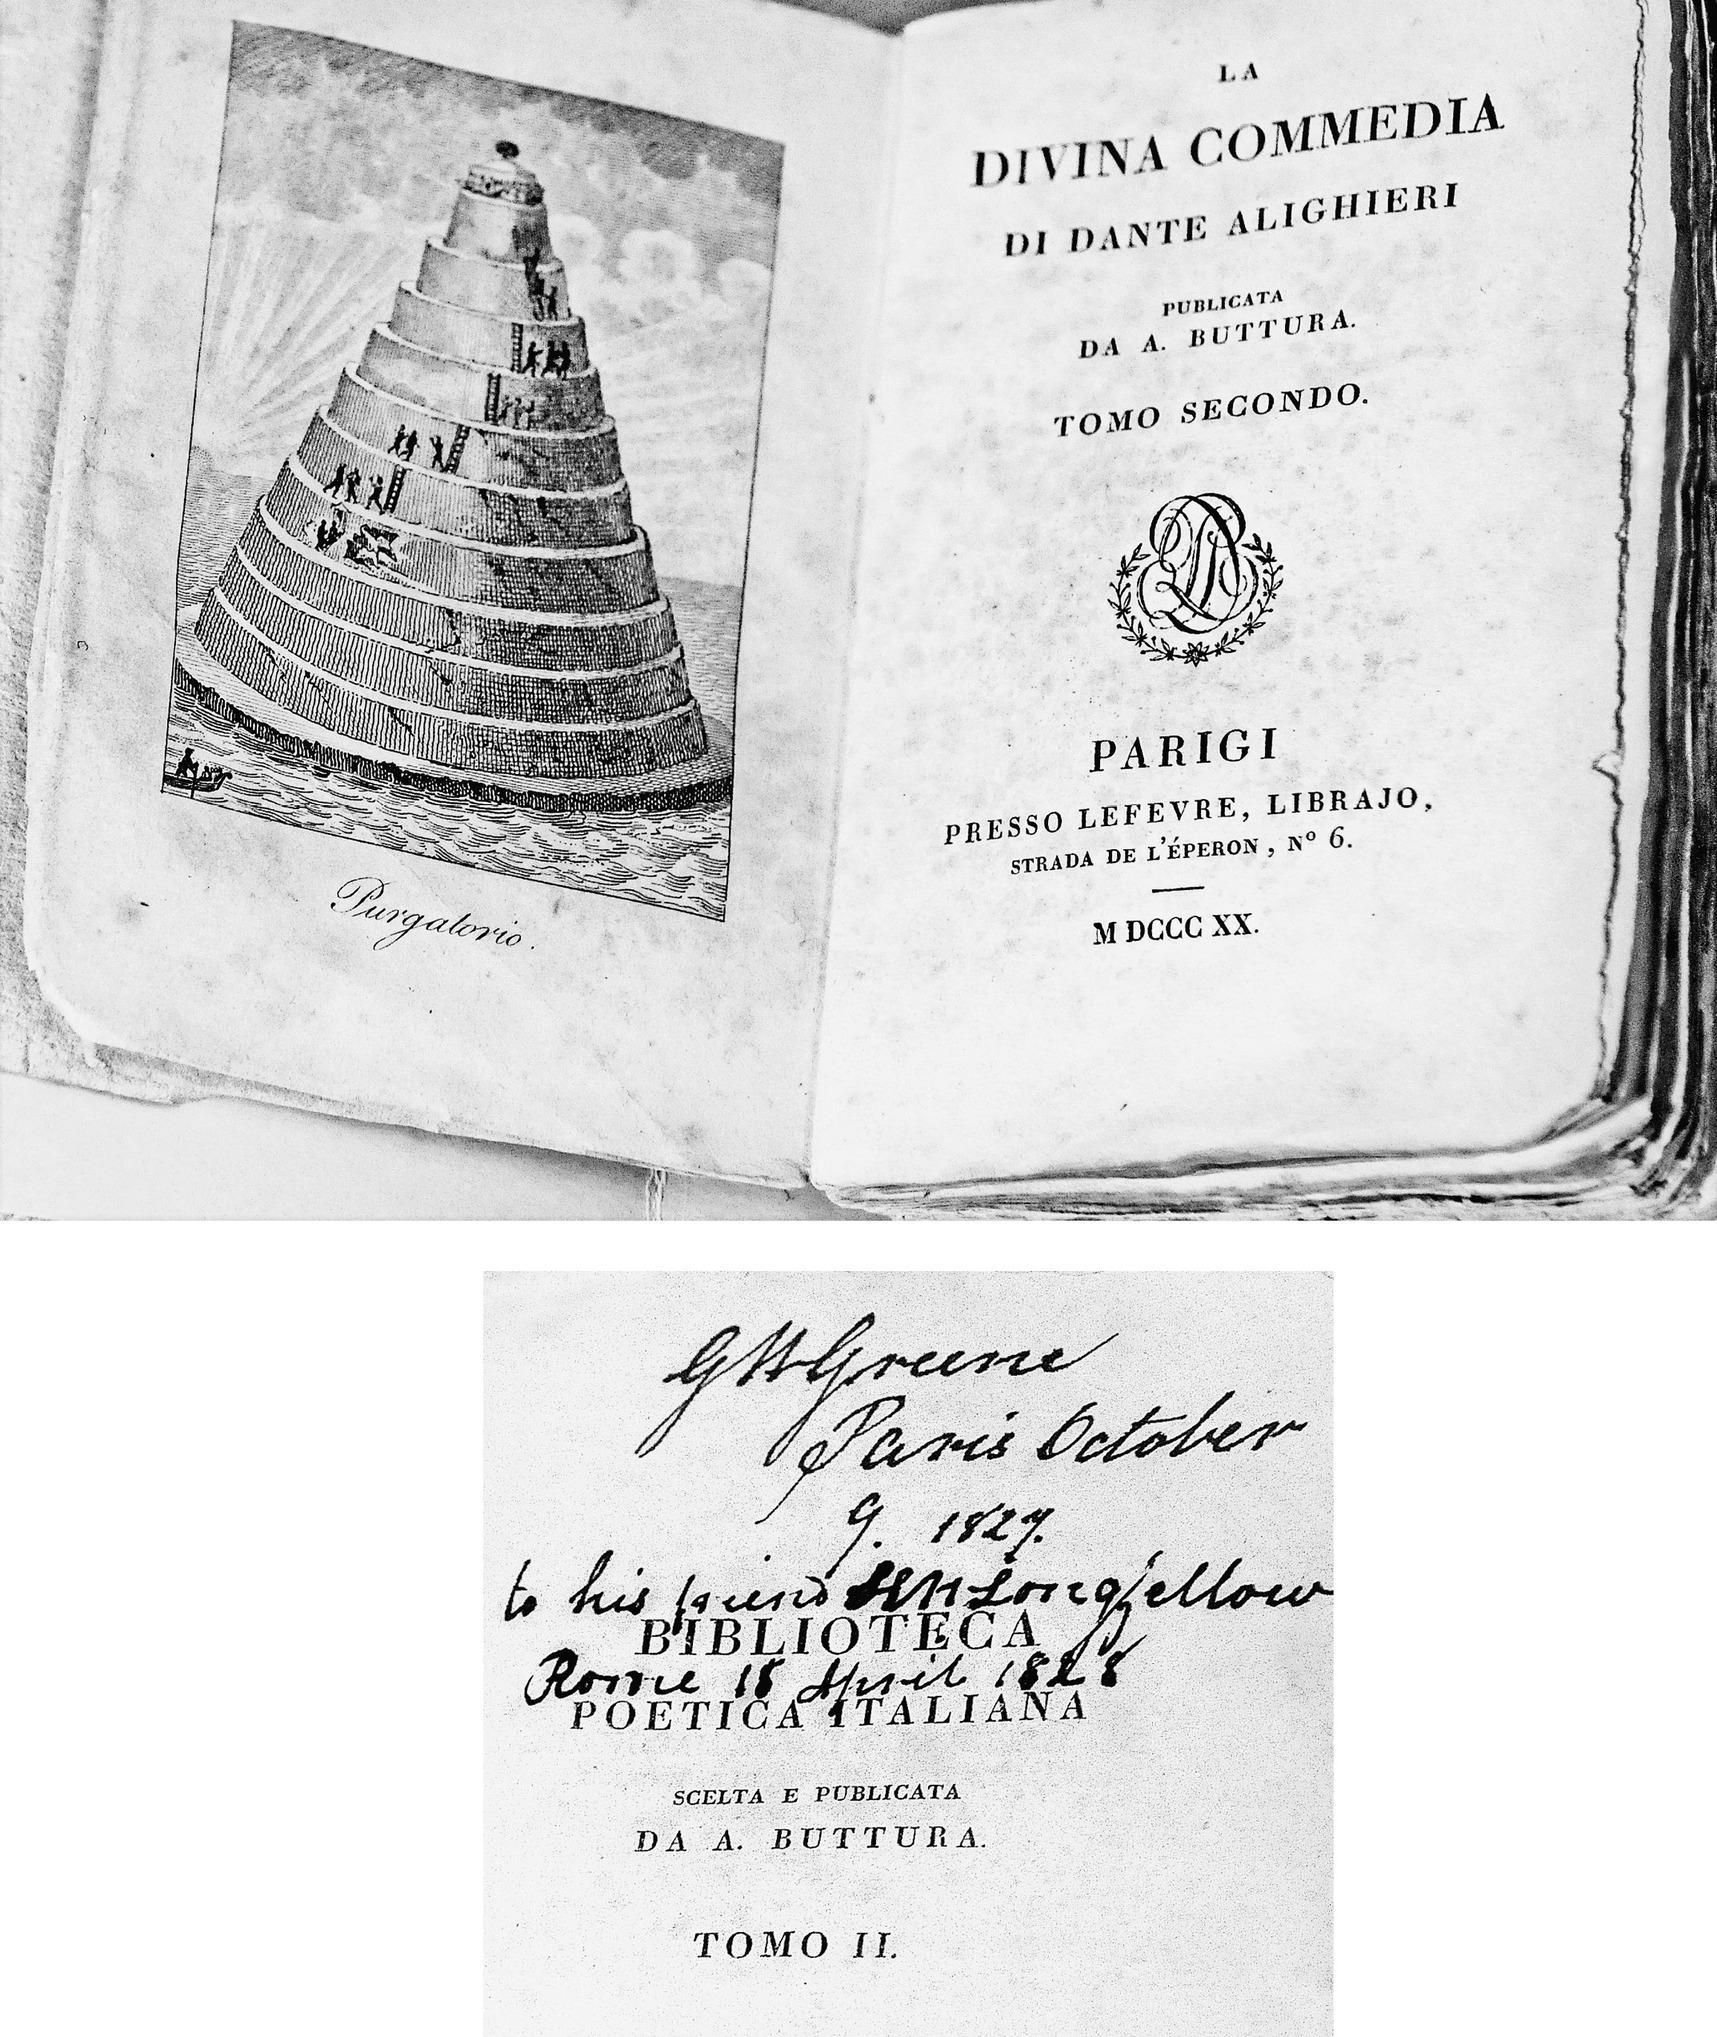 Purgatorio.
LA
DIVINA COMMEDIA
DI DANTE ALIGHIERI
PUBLICATA
DA A. BUTTURA.
TOMO SECONDO.
PARIGI
PRESSO LEFEVRE, LIBRAJO,
STRADA DE L'ÉPERON, Nº 6.
M DCCC XX.
GWGreene
Paris October
9. 1827.
to his friend HWLongfellow
BIBLIOTECA
Rome 18 April 1828
POETICA ITALIANA
SCELTA E PUBLICATA
DA A. BUTTURA.
TOMO II.